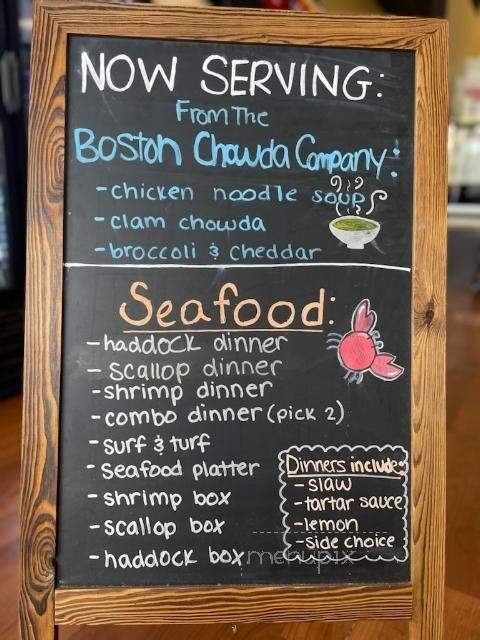 NOW SERVING:
From The
Boston Chowda Company:
-chicken noodle soup
-clam chowda
-broccoli & cheddar
Seafood:
-haddock dinner
-scallop dinner
-shrimp dinner
-combo dinner (pick 2)
-surf & turf
-seafood platter
-shrimp box
-scallop box
-haddock box
Dinners include:
-slaw
-tartar sauce
-lemon
-side choice
menupix